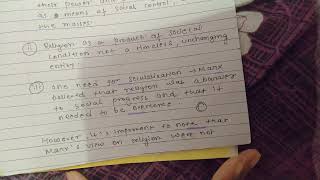 their power and
as a means of social control,
the masses.
(II) Religion as a product of societal
condition not a timeless, unchanging
entity.
(III) The need for socialisation → Marx
believed that religion was a
to social progress and that it
needed to be overcome.
However, it's important to note that
Marx's view on religion were not